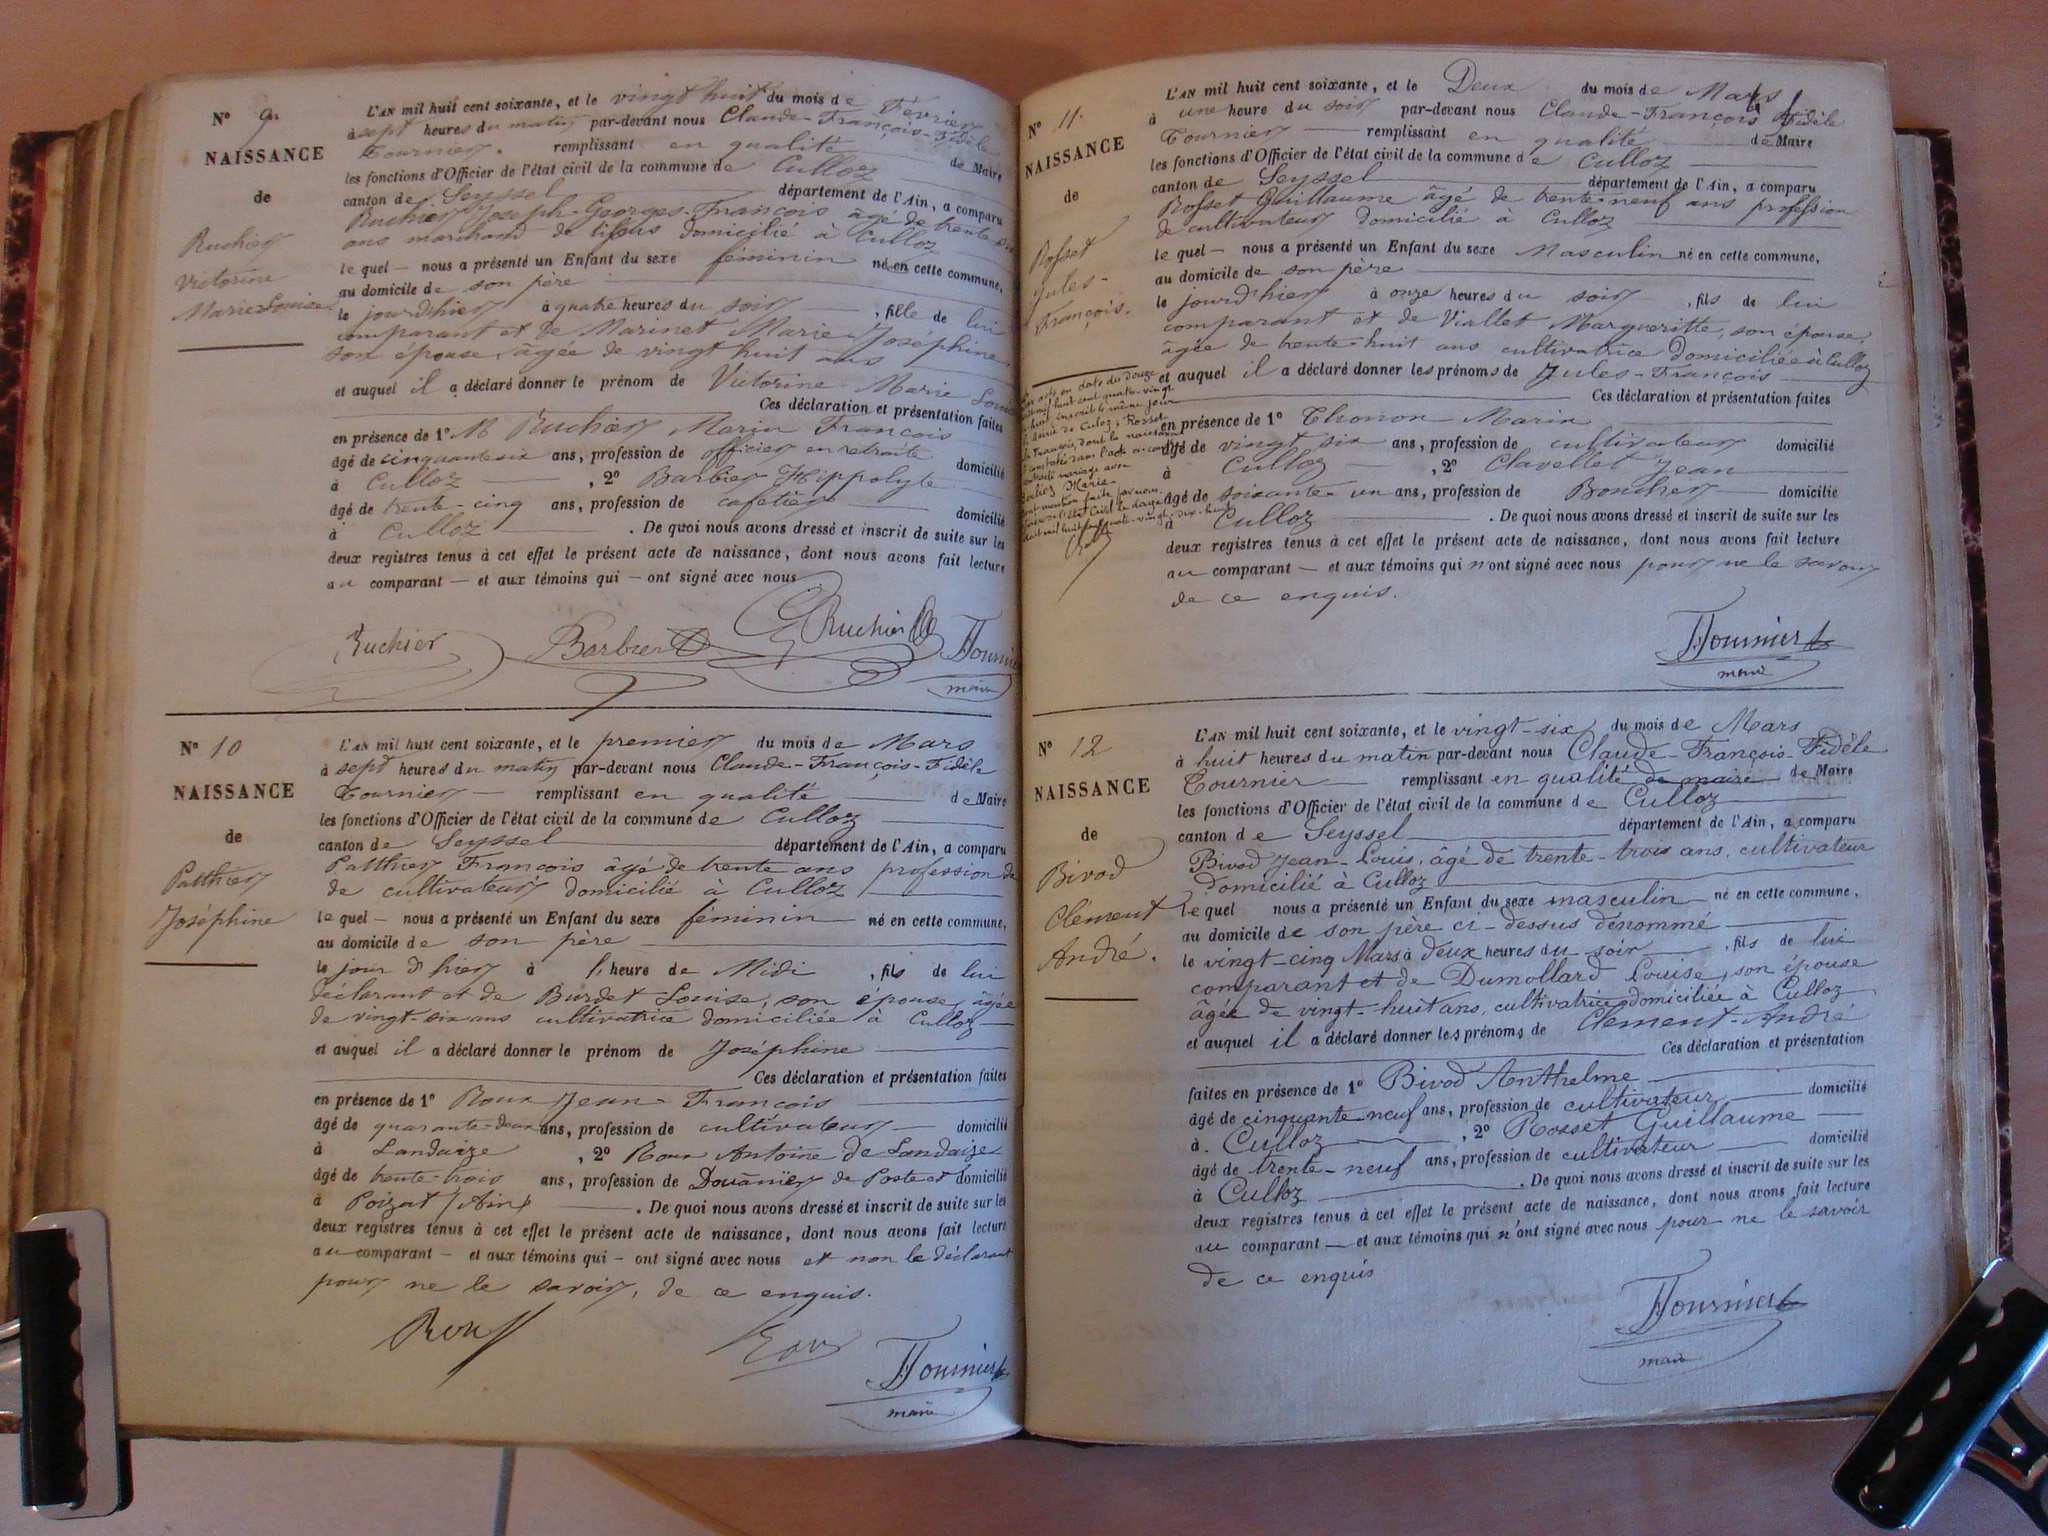 N° 9.
NAISSANCE
de
Ruchier
Victorine
Marie Louise
L'AN mil huit cent soixante, et le vingt huit du mois de Février
à sept heures du matin par-devant nous Claude-François-Fidèle
Tournier. remplissant en qualité de Maire
les fonctions d'Officier de l'état civil de la commune de Culloz
canton de Seyssel département de l'Ain, a comparu
Ruchier Joseph-Georges-François âgé de trente-six
ans marchand de tissus domicilié à Culloz
le quel — nous a présenté un Enfant du sexe féminin né en cette commune,
au domicile de son père
le jourd'hier à quatre heures du soir , fille de lui
comparant et de Marinet Marie Joséphine
son épouse, âgée de vingt huit ans
et auquel il a déclaré donner le prénom de Victorine Marie Louise
Ces déclaration et présentation faites
en présence de 1° M Ruchier Marin François
âgé de cinquante six ans, profession de officier en retraite domicilié
à Culloz , 2° Barbier Hippolyte
âgé de trente-cinq ans, profession de cafetier domicilié
à Culloz . De quoi nous avons dressé et inscrit de suite sur les
deux registres tenus à cet effet le présent acte de naissance, dont nous avons fait lecture
au comparant — et aux témoins qui — ont signé avec nous
Ruchier Barbier Ruchier Tournier
maire
N° 10
NAISSANCE
de
Patthier
Joséphine
L'AN mil huit cent soixante, et le premier du mois de Mars
à sept heures du matin par-devant nous Claude-François-Fidèle
Tournier — remplissant en qualité de Maire
les fonctions d'Officier de l'état civil de la commune de Culloz
canton de Seyssel département de l'Ain, a comparu
Patthier François âgé de trente ans profession de
de cultivateur domicilié à Culloz
le quel — nous a présenté un Enfant du sexe féminin né en cette commune,
au domicile de son père
le jour d'hier à l'heure de Midi , fils de lui
déclarant et de Burdet Louise, son épouse, âgée
de vingt-six ans cultivatrice domiciliée à Culloz
et auquel il a déclaré donner le prénom de Joséphine
Ces déclaration et présentation faites
en présence de 1° Roux Jean François
âgé de quarante-deux ans, profession de cultivateur domicilié
à Landaize , 2° Roux Antoine de Landaize
âgé de trente-trois ans, profession de Douanier de Poste et domicilié
à Poizat (Ain) . De quoi nous avons dressé et inscrit de suite sur les
deux registres tenus à cet effet le présent acte de naissance, dont nous avons fait lecture
au comparant — et aux témoins qui — ont signé avec nous et non le déclarant
pour ne le savoir, de ce enquis.
Roux Tournier
maire
N° 11.
NAISSANCE
de
Rosset
Jules-
François.
L'AN mil huit cent soixante, et le Deux du mois de Mars
à une heure du soir par-devant nous Claude-François Fidèle
Tournier — remplissant en qualité de Maire
les fonctions d'Officier de l'état civil de la commune de Culloz
canton de Seyssel département de l'Ain, a comparu
Rosset Guillaume âgé de trente-neuf ans profession
de cultivateur domicilié à Culloz
le quel — nous a présenté un Enfant du sexe Masculin né en cette commune,
au domicile de son père
le jourd'hier à onze heures du soir , fils de lui
comparant et de Viallet Margueritte, son épouse,
âgée de trente-huit ans cultivatrice domiciliée à Culloz
et auquel il a déclaré donner les prénoms de Jules-François
Ces déclaration et présentation faites
en présence de 1° Thonon Marin
âgé de vingt six ans, profession de cultivateur domicilié
à Culloz , 2° Clavellet Jean
âgé de soixante-un ans, profession de Boucher domicilié
à Culloz . De quoi nous avons dressé et inscrit de suite sur les
deux registres tenus à cet effet le présent acte de naissance, dont nous avons fait lecture
au comparant — et aux témoins qui n'ont signé avec nous pour ne le savoir
de ce enquis.
acte en date du douze
mil huit cent quatre-vingt
inscrit le même jour
mairie de Culoz, Rosset
François, dont la naissance
constatée dans l'acte ci-contre
contracté mariage avec
Marie
mention faite par nous
Tournier
maire
N° 12
NAISSANCE
de
Bivod
Clément
André.
L'AN mil huit cent soixante, et le vingt-six du mois de Mars
à huit heures du matin par-devant nous Claude-François-Fidèle
Tournier remplissant en qualité de maire de Maire
les fonctions d'Officier de l'état civil de la commune de Culloz
canton de Seyssel département de l'Ain, a comparu
Bivod Jean-Louis, âgé de trente-trois ans, cultivateur
domicilié à Culloz
le quel nous a présenté un Enfant du sexe masculin né en cette commune,
au domicile de son père ci-dessus dénommé
le vingt-cinq Mars à deux heures du soir , fils de lui
comparant et de Dumollard Louise, son épouse
âgée de vingt-huit ans, cultivatrice domiciliée à Culloz
et auquel il a déclaré donner les prénoms de Clément-André
Ces déclaration et présentation
faites en présence de 1° Bivod Anthelme
âgé de cinquante neuf ans, profession de cultivateur domicilié
à Culloz , 2° Rosset Guillaume
âgé de trente-neuf ans, profession de cultivateur domicilié
à Culloz . De quoi nous avons dressé et inscrit de suite sur les
deux registres tenus à cet effet le présent acte de naissance, dont nous avons fait lecture
au comparant — et aux témoins qui n'ont signé avec nous pour ne le savoir
de ce enquis
Tournier
maire